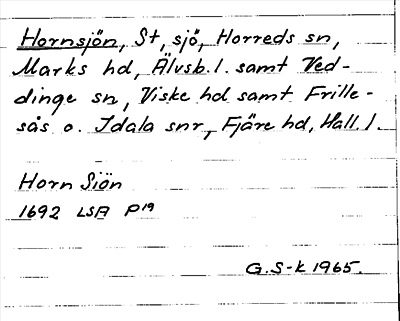 Hornsjön, St, sjö, Horreds sn,
Marks hd, Älvsb. l. samt Ved-
dinge sn, Viske hd samt Frille-
sås o. Idala snr, Fjäre hd, Hall. l.
Horn Siön
1692 LSA P19
G.S-k 1965.